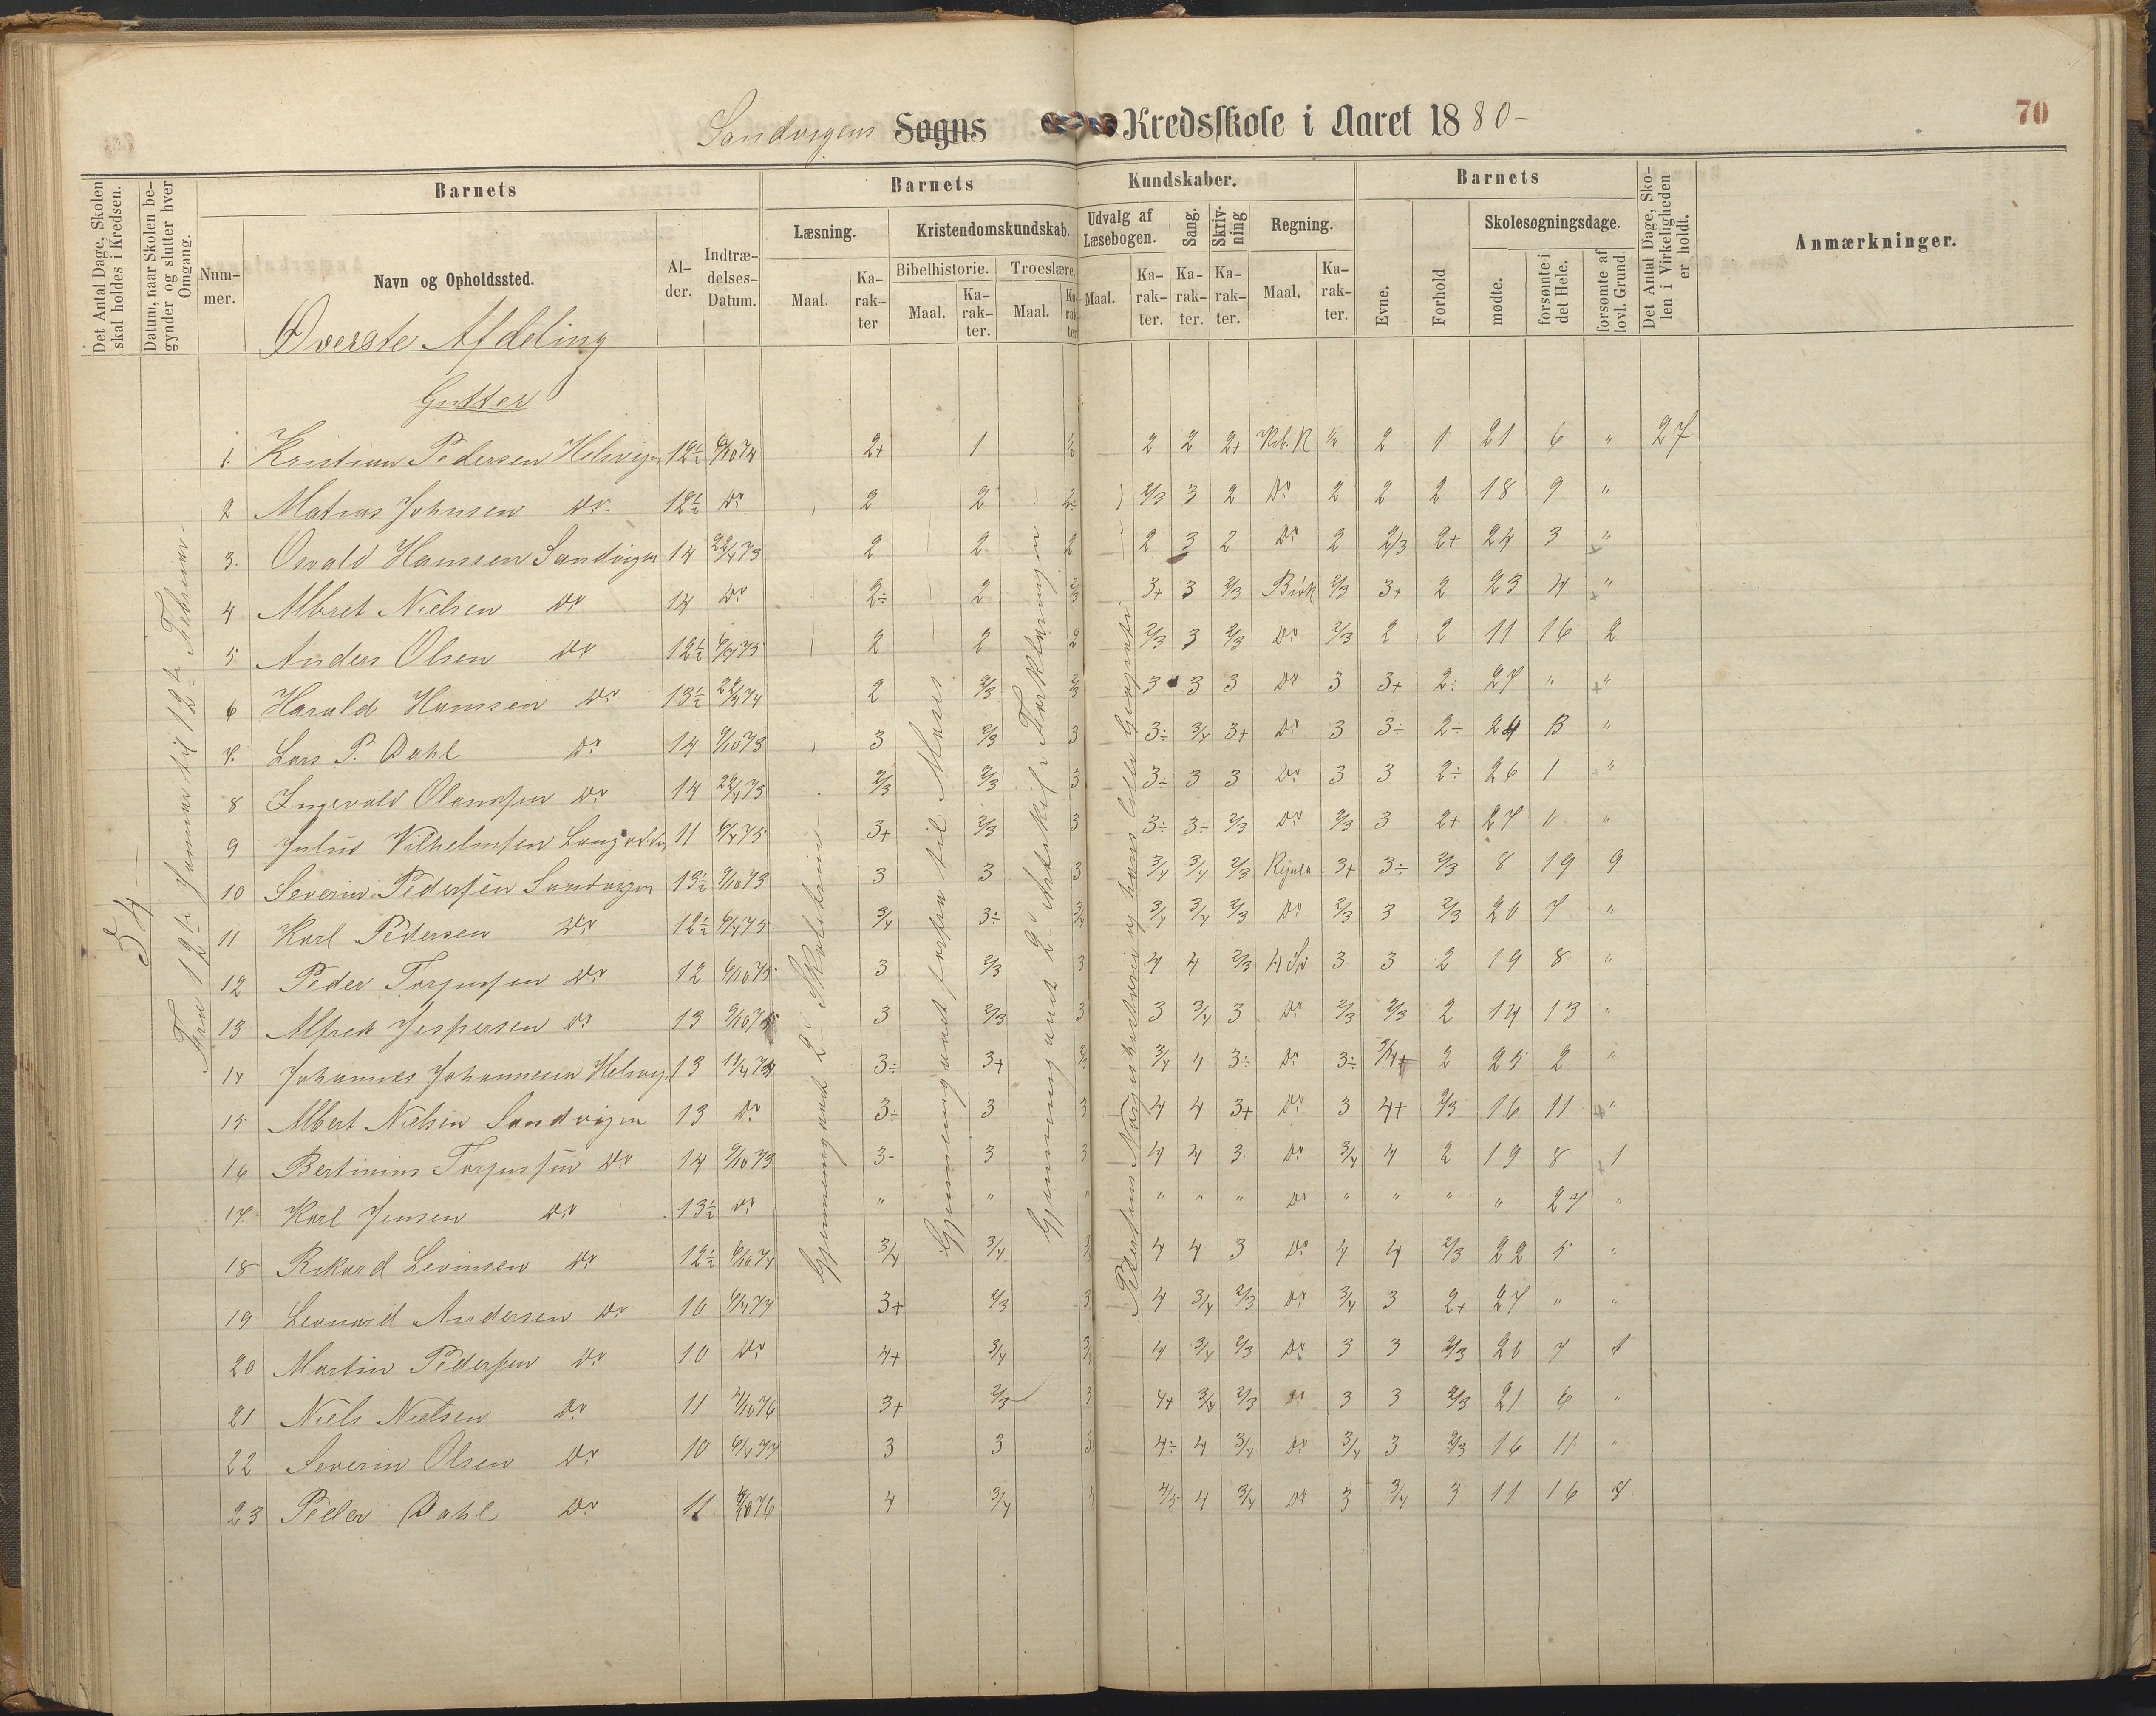 Sandvigens Sogns Kredsskole i Aaret 1880-
70
Det Antal Dage, Skolen skal holdes i Kredsen.
Datum, naar Skolen begynder og slutter hver Omgang.
Barnets
Nummer.
Navn og Opholdssted.
Alder.
Indtrædelses-Datum.
Barnets Kundskaber.
Læsning.
Maal.
Karakter
Kristendomskundskab.
Bibelhistorie.
Maal.
Karakter.
Troeslære.
Maal.
Karakter
Udvalg af Læsebogen.
Maal.
Karakter.
Sang.
Karakter.
Skrivning
Karakter.
Regning.
Maal.
Karakter.
Barnets
Evne.
Forhold
Skolesøgningsdage.
mødte.
forsømte i det Hele.
forsømte af lovl. Grund.
Det Antal Dage, Skolen i Virkeligheden er holdt.
Anmærkninger.
54
Fra 12te Januar til 12te Februar
Øverste Afdeling
Gutter
Gjennemgaaet forfra til Moses
Gjennemgaaet 2den Artikkel i Forklaringen
1. Kristian Pedersen Helvigen 12½ 6/10 74 2+ 1 ½ 2 2 2+ ½ 2 1 21 6 " 27
2 Matias Johnsen do. 12½ do 2 2 2÷ 2/3 3 2 do 2 2 2 18 9 "
3. Osvald Hansen Sandvigen 14 22/4 73 2 2 2 2 3 2 do 2 2/3 2+ 24 3 "
4 Albret Nielsen do 14 do 2÷ 2 2/3 3+ 3 2/3 Brøk 2/3 3+ 2 23 4 "
5 Anders Olsen do 12½ 2 2 2 2/3 3 2/3 do 2/3 2 2 11 16 2
6 Harald Hansen do 13½ 22/4 74 2 2/3 2/3 3 3 3 do 3 3+ 2÷ 27 " "
7. Lars P. Dahl do 14 9/10 73 3 2/3 3 3÷ 3/4 3+ do 3 3÷ 2÷ 24 3 "
8 Ingevald Olausssen do 14 22/4 73 2/3 2/3 3 3÷ 3 3 do 3 3 2÷ 26 1 "
9 Julius Vilhelmsen 11 6/4 75 3+ 2/3 3 3÷ 3÷ 2/3 do 2/3 3 2+ 27 " "
10 Severin Pedersen Sandvigen 13½ 9/10 73 3 3 3 3/4 3/4 2/3 3+ 3÷ 2/3 8 19 9
11 Karl Pedersen do 12½ 6/4 75 3/4 3÷ 3/4 3/4 3/4 2/3 do 2/3 3 2/3 20 7 "
12 Peder Torjussen do 12 6/10 75 3 2/3 3 4 4 2/3 3 3 2 19 8 "
13 Alfred Jespersen do 13 3 2/3 3 3 3/4 3 do 2/3 2/3 2 14 13 "
14 Johannes Johannesen Helvig. 13 3÷ 3+ 3/4 3/4 4 3÷ do 3÷ 2 25 2 "
15 Albert Nielsen Sandvigen 13 do 3÷ 3 3 4 4 3+ do 3 4+ 2/3 16 11 "
16 Bertinius Torjussen do 14 9/10 73 3- 3 3 4 4 3 do 3/4 4 2 19 8 1
17. Karl Jensen do 13½ do " " " " " " do " " " " 27 "
18 Rikard Levinsen do 12½ 6/10 74 3/4 3/4 4 4 3 do 4 4 2/3 22 5 "
19 Leonard Andersen do 10 6/4 77 3+ 2/3 3 4 3/4 2/3 do 3/4 3 2+ 27 " "
20 Martin Pedersen do 10 do 4+ 3/4 3/4 4 3/4 2/3 do 3 3 2/3 20 7 1
21 Niels Nielsen do 11 4/10 76 3+ 2/3 3 4+ 3/4 2/3 do 3 3 2/3 21 6 "
22 Severin Olsen do 10 6/4 77 3 3 3 4÷ 4 3/4 do 3/4 3 2/3 16 11 "
23 Peder Dahl do 11 4/10 76 4 3/4 4 4/5 4 3/4 do 3 3/4 3 11 16 8